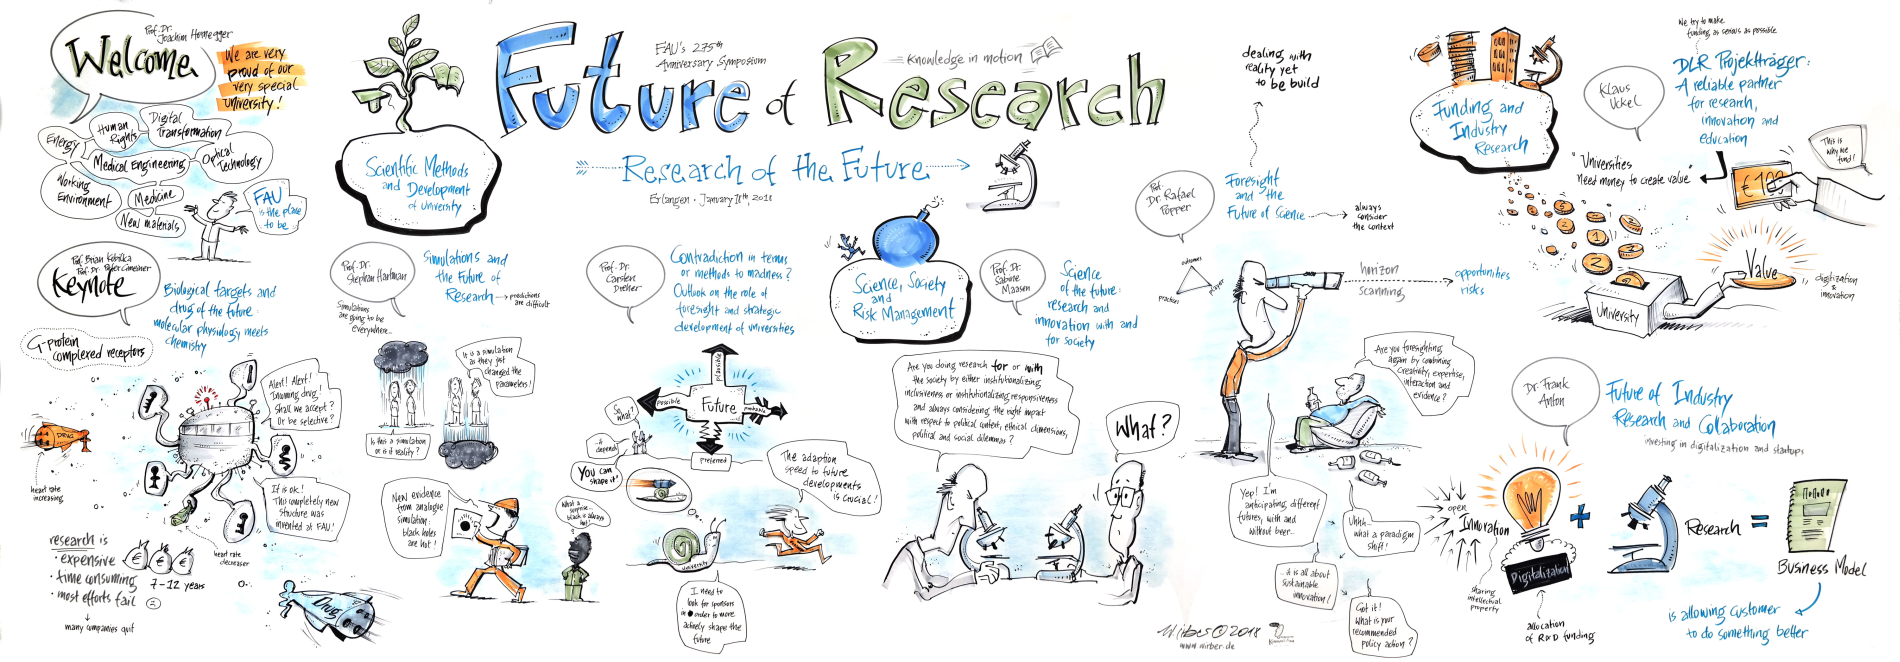 Prof. Dr.
Joachim Hornegger
Welcome
We are very
proud of our
very special
university!
Energy
Human
Rights
Digital
Transformation
Medical Engineering
Optical
Technology
Working
Environment
Medicine
New materials
FAU
is the place
to be
Prof. Brian Kobilka
Prof. Dr. Peter Gmeiner
Keynote
Biological targets and
drug of the future:
molecular physiology meets
chemistry
G-protein
complexed receptors
Alert! Alert!
Incoming drug!
Shall we accept?
Or be selective?
DRUG
heart rate
increasing
If is ok!
This completely new
structure was
invented at FAU!
heart rate
decreaser
research is
· expensive
€ € €
· time consuming
7-12 years
· most efforts fail
many companies quit
Drug
Scientific Methods
and Development
of University
Future of Research
FAU's 275th
Anniversary Symposium
Knowledge in motion
Research of the Future
Erlangen · January 18th, 2018
Prof. Dr.
Stephan Hartman
Simulations and
the Future of
Research
predictions
are difficult
Simulations
are going to be
everywhere...
It is a simulation
as they just
changed the
parameters!
Is this a simulation
or is it reality?
New evidence
from analogue
simulation:
black holes
are hot!
What a
surprise...
black is always
hot
Prof. Dr.
Carsten
Dreher
Contradiction in terms
or methods to madness?
Outlook on the role of
foresight and strategic
development of universities
plausible
possible
Future
probable
preferred
So
what?
...it
depends
You can
shape it!
The adaption
speed to future
developments
is crucial!
University
I need to
look for sponsors
in order to more
actively shape the
future
Science, Society
and
Risk Management
Prof. Dr.
Sabine
Maasen
Science
of the future:
research and
innovation with and
for society
Are you doing research for or with
the society by either institutionalizing
inclusiveness or institutionalizing responsiveness
and always considering the right impact
with respect to political context, ethical dimensions,
political and social dilemmas?
What?
dealing with
reality yet
to be build
Prof.
Dr. Rafael
Popper
Foresight
and the
Future of Science
always
consider
the context
outcomes
player
praction
horizon
scanning
opportunities
risks
Are you foresighting
again by combining
creativity, expertise,
interaction and
evidence?
Yep! I'm
anticipating different
futures, with and
without beer...
Uhhh...
what a paradigm
shift!
...it is all about
sustainable
innovation!
Got it!
What is your
recommended
policy action?
Wirbes©2018
www.wirber.de
Funding and
Industry
Research
Klaus
Uckel
We try to make
funding as serious as possible
DLR Projektträger:
A reliable partner
for research,
innovation and
education
"Universities
need money to create value"
This is
why we
fund!
€ 100
University
Value
digitization
&
innovation
Dr. Frank
Anton
Future of Industry
Research and Collaboration
investing in digitalization and startups
open
Innovation
Digitalization
sharing
intellectual
property
allocation
of R&D funding
+
Research
=
Business Model
is allowing customer
to do something better